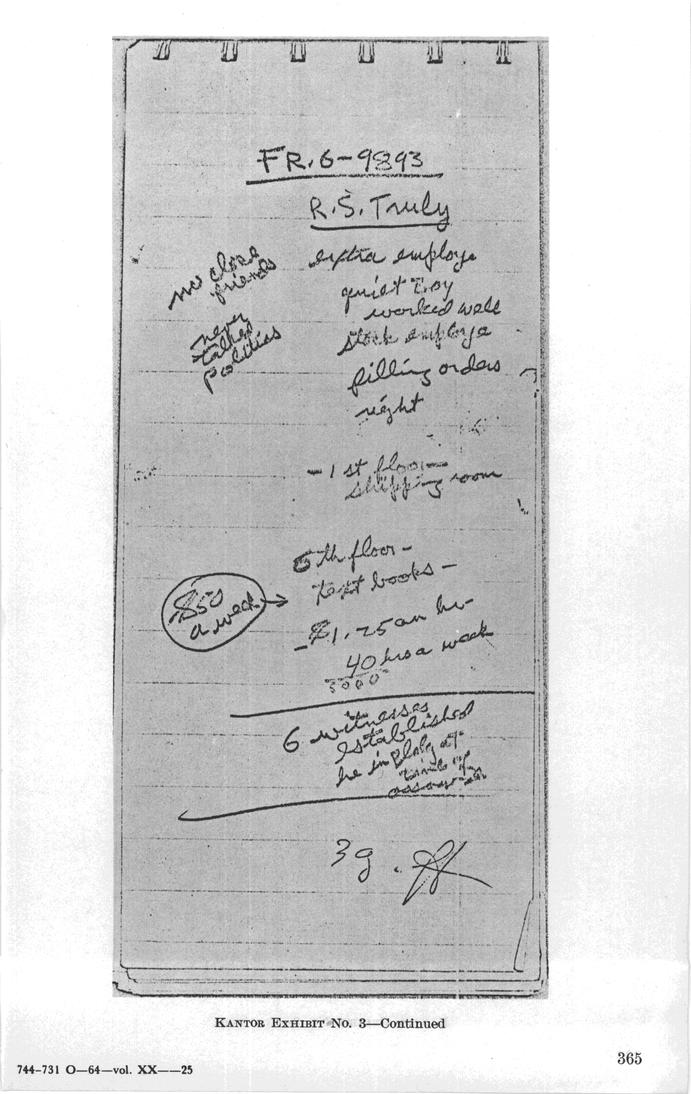 FR.6-9893
R.S. Truly
no close
friends
never
talked
politics
extra employe
quiet boy
worked well
stock employe
filling orders
right
- 1st floor -
shipping room
6th floor -
text books -
$50
a week
- $1.25 an hr
40 hrs a week
5000
6 witnesses
established
he in bldg at
time of
assassin
3g.
KANTOR EXHIBIT NO. 3—Continued
365
744-731 O—64—vol. XX——25